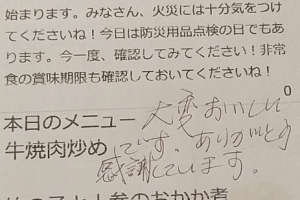 始まります。みなさん、火災には十分気をつけ
てくださいね！今日は防災用品点検の日でもあ
ります。今一度、確認してみてください！非常
食の賞味期限も確認しておいてくださいね！
0
本日のメニュー
大変おいしい
牛焼肉炒め
です。ありがとう
感謝しています。